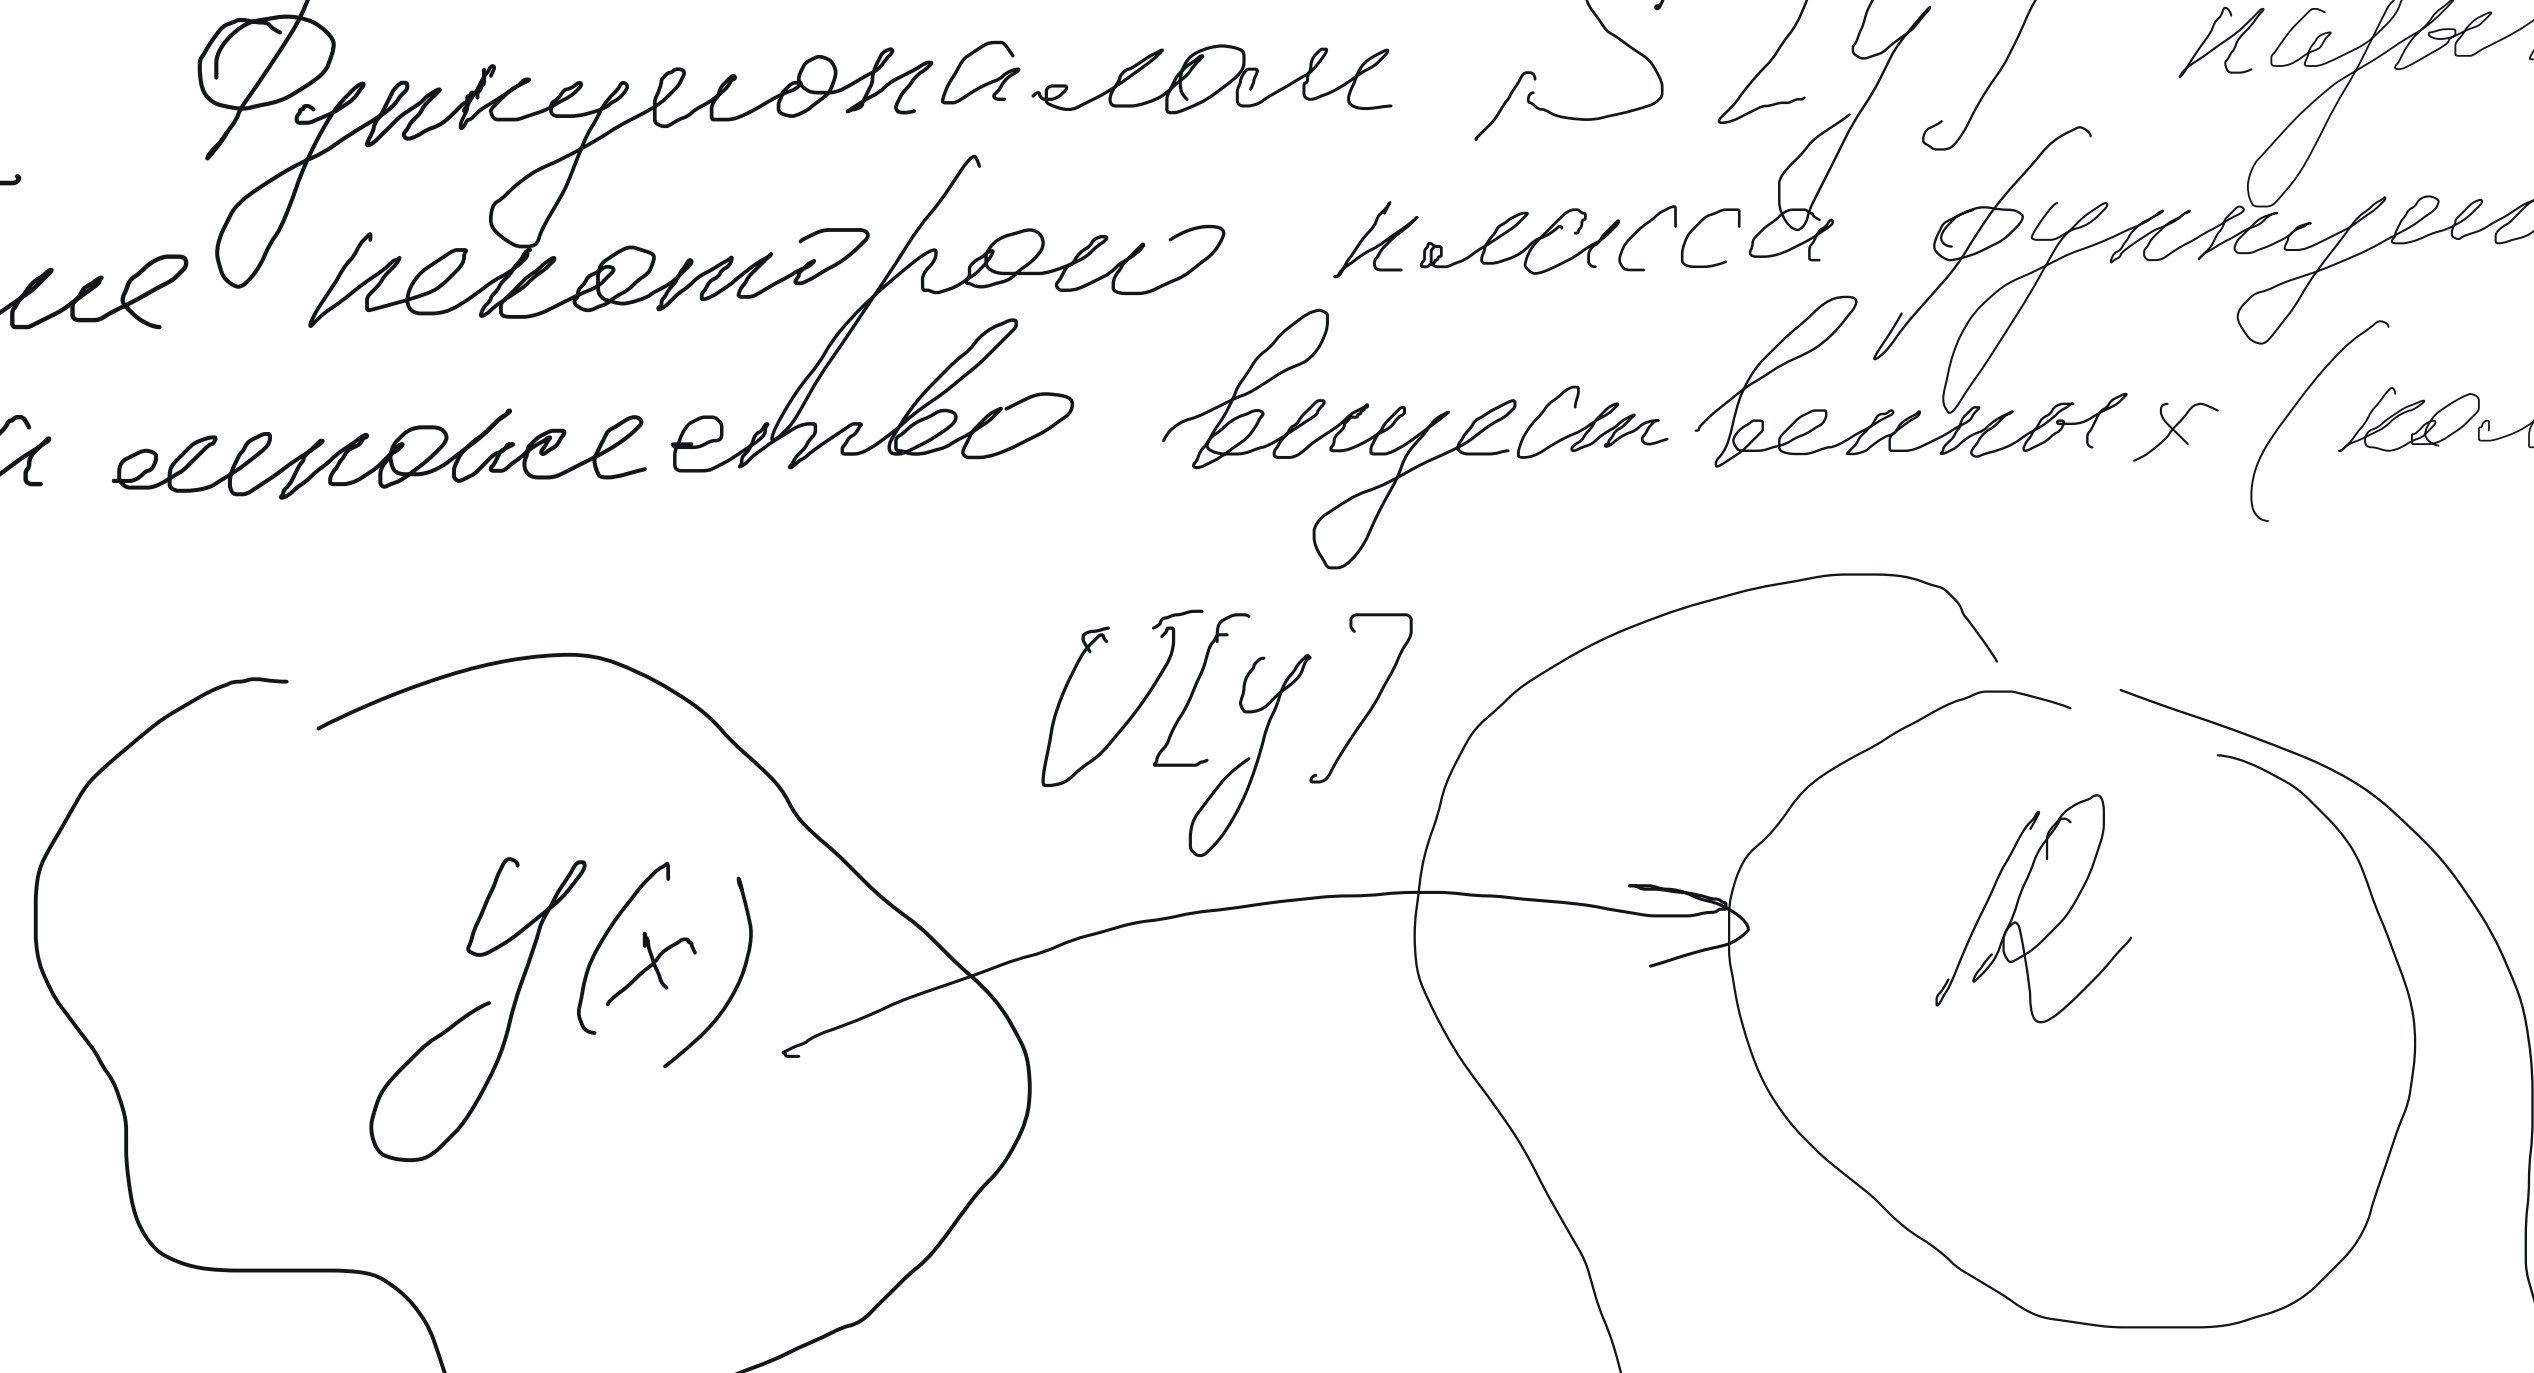 Функционалом S[y] назы
ие некоторого класса функции
а множество вещественных (
V[y]
y(x)
R